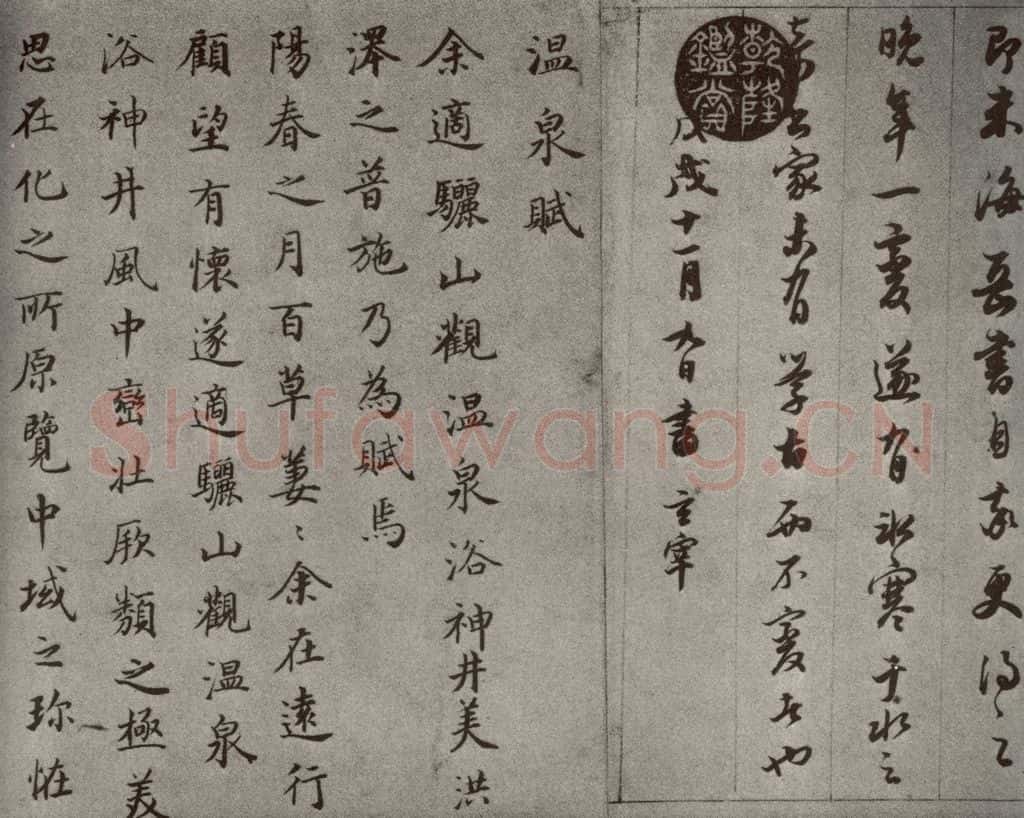 即米海岳書自率更得之
晚年一變遂有冰寒于水之
奇書家未有學古而不變者也
戊戌十一月九日書玄宰
乾隆鑑賞
溫泉賦
余適驪山觀溫泉浴神井美洪
澤之普施乃為賦焉
陽春之月百草萋〻余在遠行
顧望有懷遂適驪山觀溫泉
浴神井風中巒壯厥類之極美
思在化之所原覽中域之珎恠
Shufawang.CN